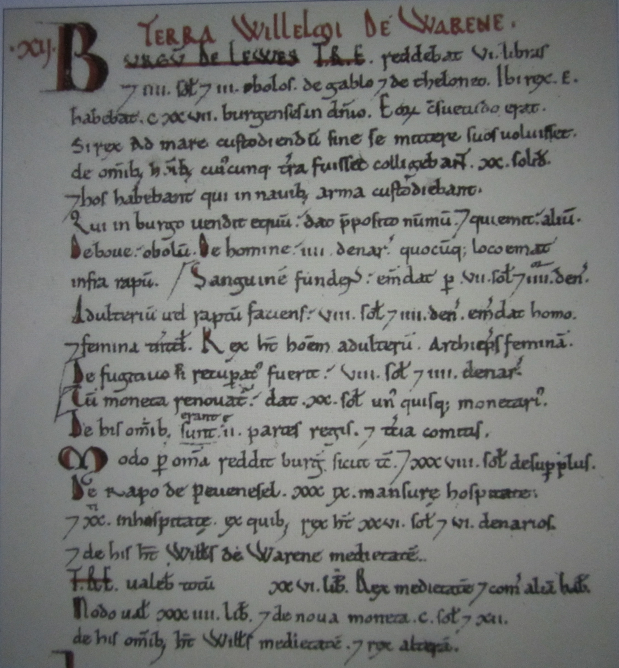 TERRA WILLELMI DE WARENE.
.XIJ. BURGŪ DE LEWES T.R.E. reddebat vi. libras
⁊ iiii. sol̄ ⁊ iii. obolos. de gablo ⁊ de theloneo. Ibi rex. E.
habebat. c.xxvii. burgenses in dn̄io. Eoꝝ c̄suetudo erat.
Si rex ad mare custodiendū sine se mittere suos voluisset.
de om̄ibꝫ cuj'cunqꝫ t̄ra fuisset colligebant. xx. solid̄.
⁊ hos habebant qui in navibꝫ arma custodiebant.
Qui in burgo vendit equū: dat p̄posito nūmū ⁊ qui emit: aliū.
De bove: obolū. De homine: iiii. denar'. quocūqꝫ loco emat
infra rapū. Sanguinē fundens: em̄dat ꝑ vii. sol̄ ⁊ iiii. den'.
Adulteriū vel raptū faciens: viii. sol̄ ⁊ iiii. den'. em̄dat homo.
⁊ femina tntd̄. Rex ht̄ hoēm adulterū. Archiep̄s feminā.
De fugitivo si recuperat' fuerit: viii. sol̄ ⁊ iiii. denar'.
Cū moneta renovat': dat. xx. sol̄ un'quisqꝫ monetari'.
De his om̄ibꝫ erant .ii. partes regis. ⁊ t'cia comitis.
Modo ꝑ om̄a reddit burg' sicut tc̄. ⁊ xxxviii. sol̄ desup̱plus.
De Rapo de Pevenesel. xxxix. mansurę hospitatę.
⁊ xx. inhospitatę. ex quibꝫ rex ht̄ xxvi. sol̄ ⁊ vi. denarios.
⁊ de his ht̄ Will's de Warene medietatē.
T.R.E. valeb̄ totū xxvi. lib̄. Rex medietatē ⁊ com' aliā hab̄.
Modo val̄ xxxiiii. lib̄. ⁊ de nova moneta. c. sol̄ ⁊ xii.
de his om̄ibꝫ ht̄ Will's medietatē. ⁊ rex alterā.